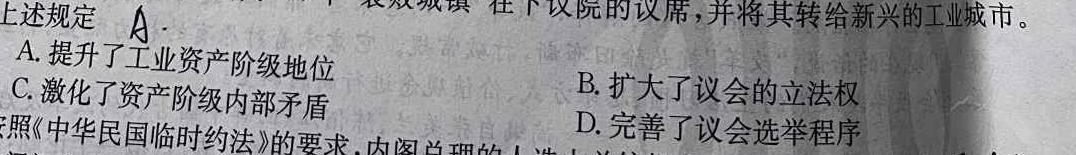 衰败城镇”在下议院的议席,并将其转给新兴的工业城市。
上述规定 A.
A. 提升了工业资产阶级地位
B. 扩大了议会的立法权
C. 激化了资产阶级内部矛盾
D. 完善了议会选举程序
照《中华民国临时约法》的要求,内阁总理的人选